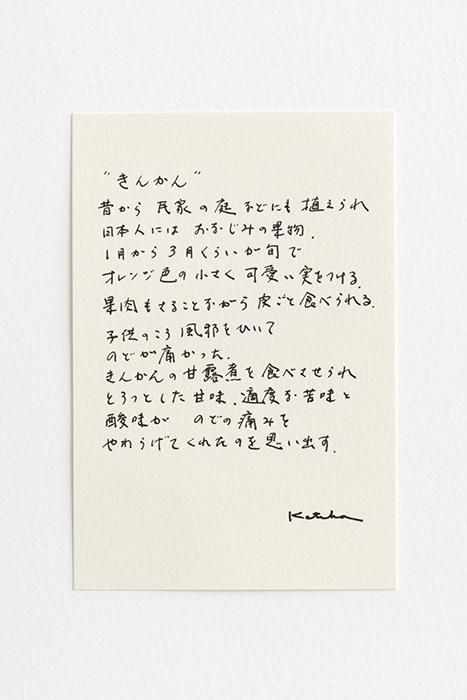 "きんかん"
昔から 民家の庭などにも植えられ
日本人には おなじみの果物.
1月から3月くらいが旬で
オレンジ色の小さく可愛い実をつける.
果肉もさることながら皮ごと食べられる.
子供のころ 風邪をひいて
のどが痛かった.
きんかんの甘露煮を食べさせられ
とろっとした甘味、適度な苦味と
酸味が のどの痛みを
やわらげてくれたのを思い出す.